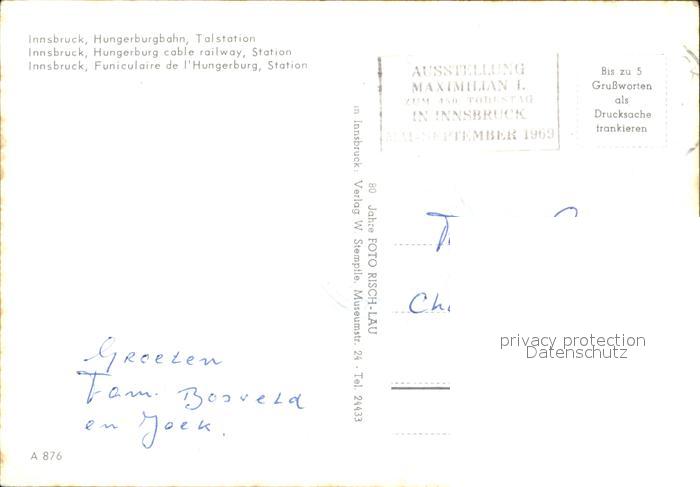 Innsbruck, Hungerburgbahn, Talstation
Innsbruck, Hungerburg cable railway, Station
Innsbruck, Funiculaire de l'Hungerburg, Station
AUSSTELLUNG
MAXIMILIAN I.
ZUM 450. TODESTAG
IN INNSBRUCK
MAI-SEPTEMBER 1969
Bis zu 5
Grußworten
als
Drucksache
frankieren
80 Jahre FOTO RISCH-LAU
in Innsbruck: Verlag W. Stempfle, Museumstr. 24 · Tel. 24433
privacy protection
Datenschutz
Groeten
Fam. Bosveld
en Joek.
A 876